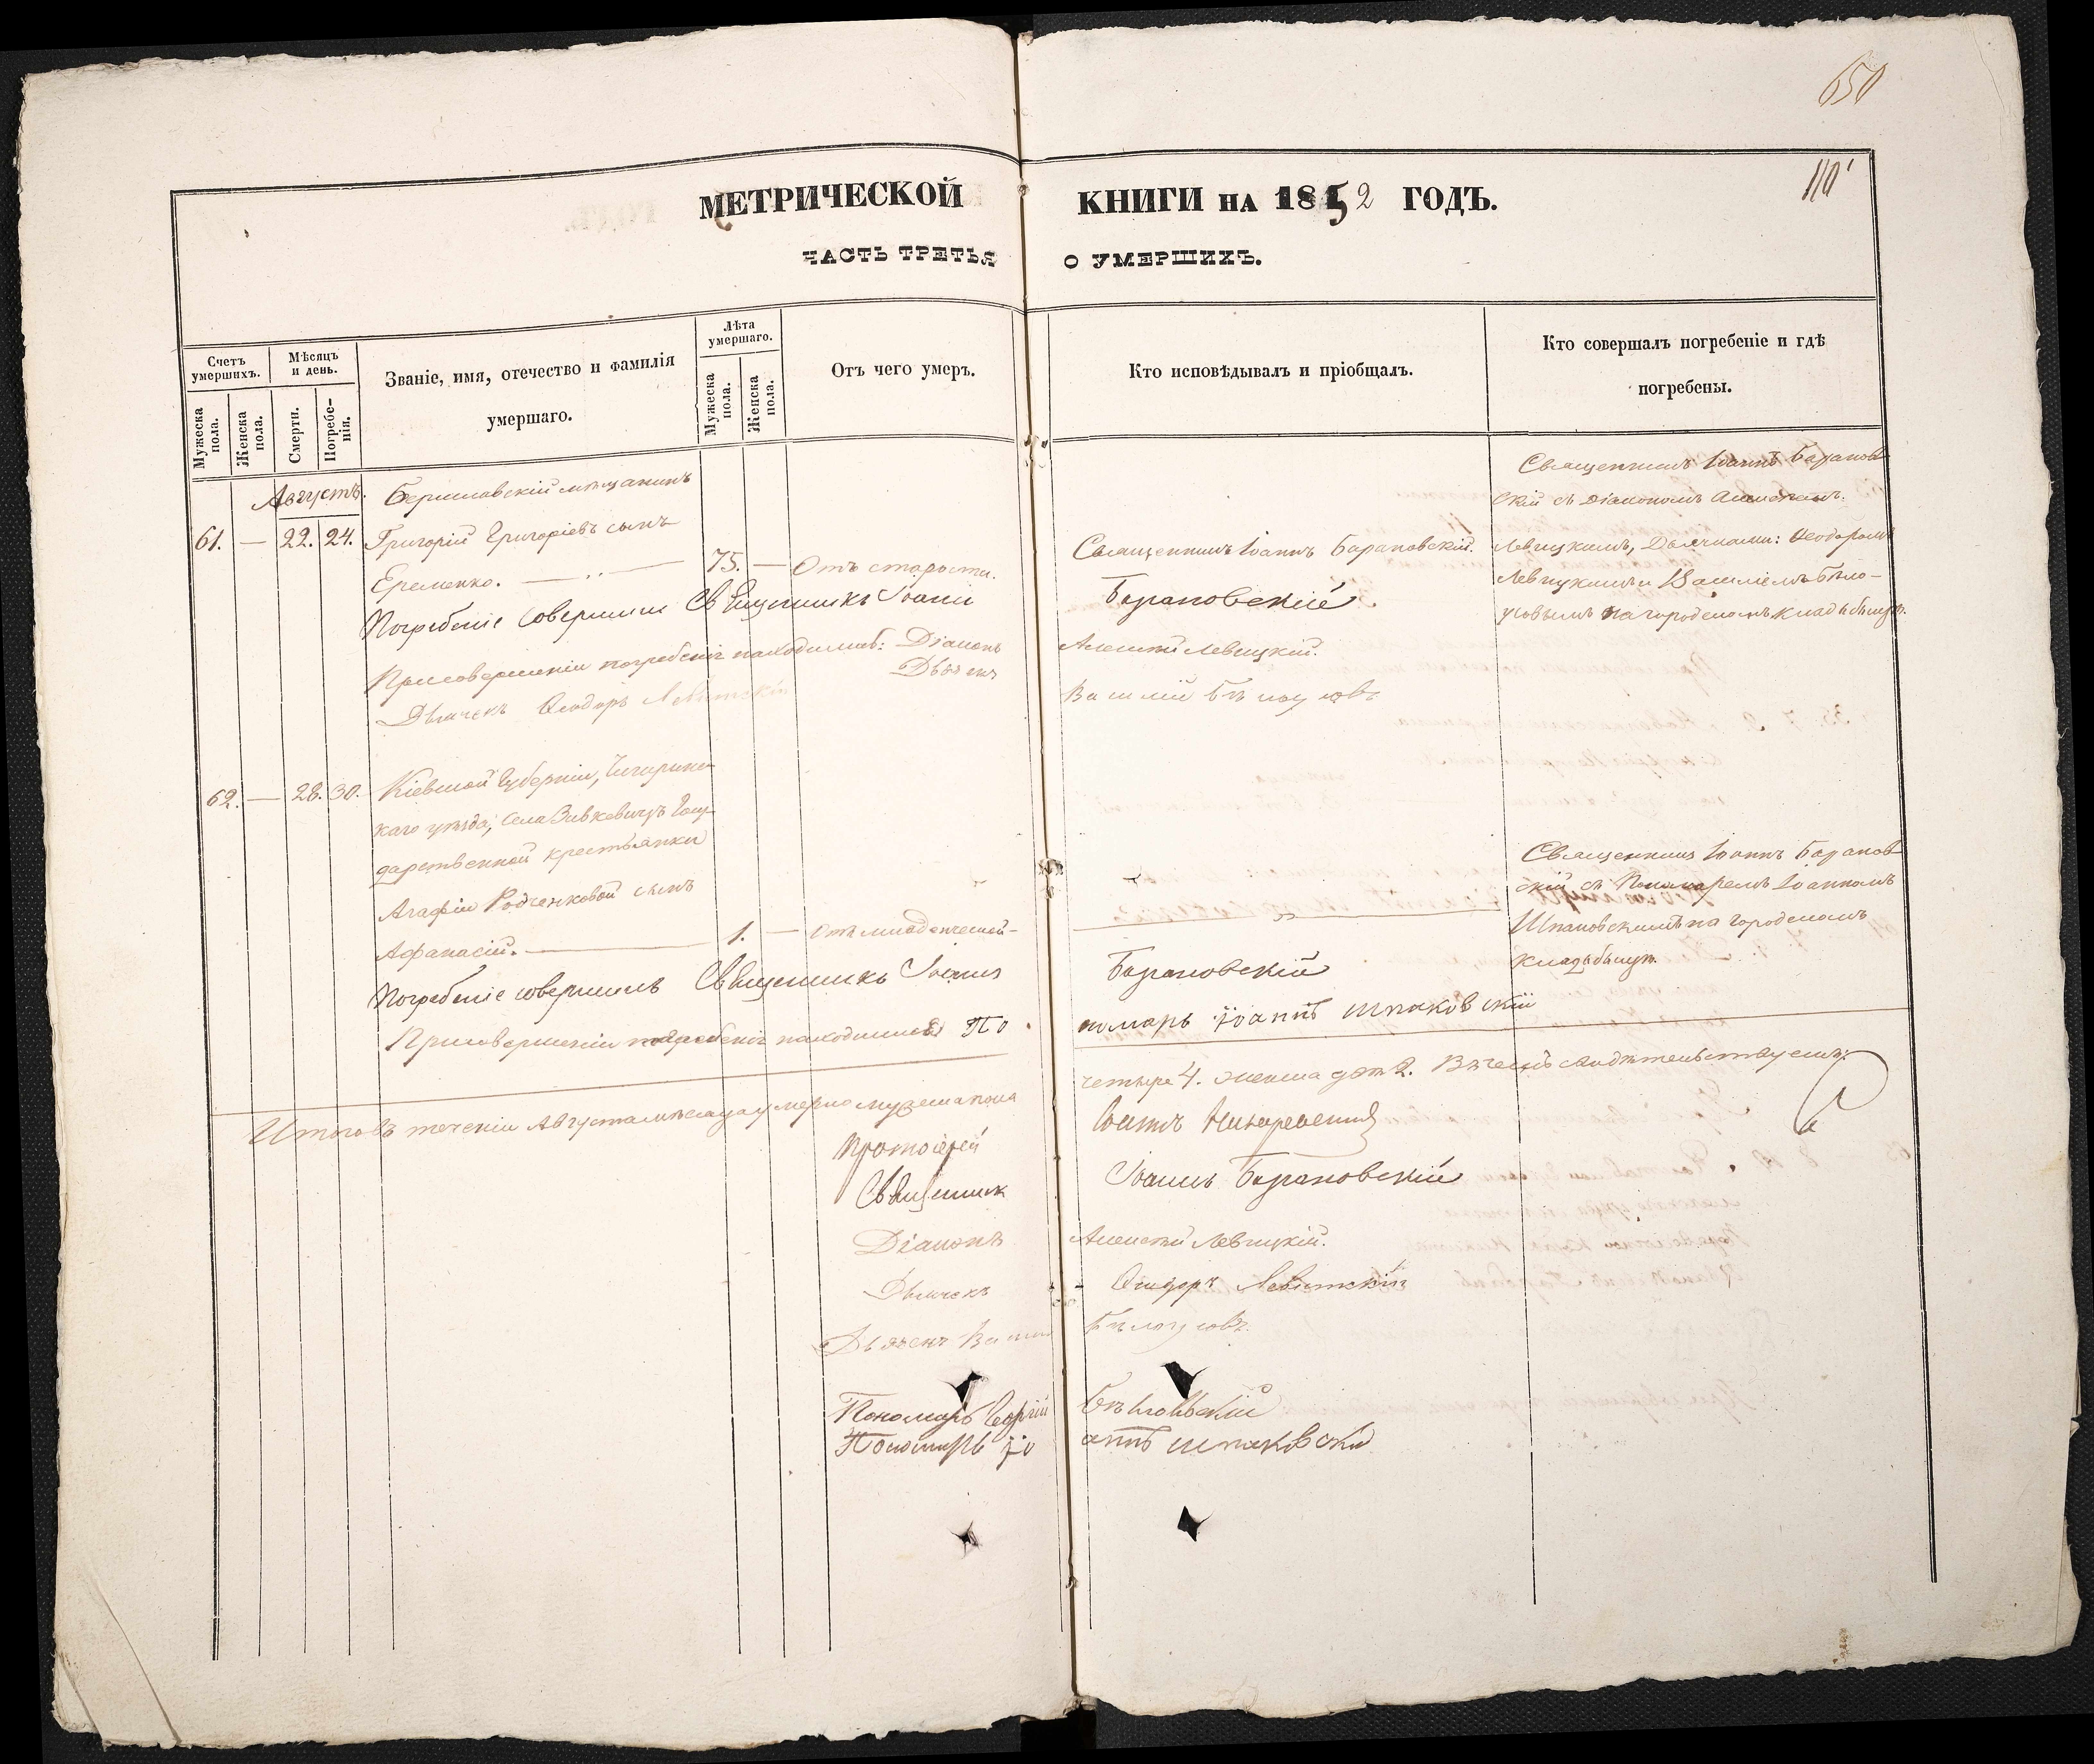 650
110
МЕТРИЧЕСКОЙ КНИГИ НА 1852 ГОДЪ.
ЧАСТЬ ТРЕТЬЯ О УМЕРШИХЪ.
Счетъ умершихъ.
Мужеска пола.
Женска пола.
Мѣсяцъ и день.
Смерти.
Погребенія.
Званіе, имя, отечество и фамилія
умершаго.
Лѣта умершаго.
Мужеска пола.
Женска пола.
Отъ чего умеръ.
Кто исповѣдывалъ и пріобщалъ.
Кто совершалъ погребеніе и гдѣ
погребены.
Августъ.
61. — 22. 24.
Бериславскій мѣщанинъ
Григорій Григоріевъ сынъ
Еременко. — 75. — Отъ старости.
Священникъ Іоаннъ Барановскій.
Священникъ Іоаннъ Баранов-
скій съ Діакономъ Алексѣемъ
Левицкимъ, Дьячками: Ѳеодоромъ
Левицкимъ и Василіемъ Бѣло-
усовымъ на городскомъ кладбищѣ.
Погребеніе совершилъ Священникъ Іоаннъ Барановскій
При совершеніи погребенія находились: Діаконъ Алексѣй Левицкій.
Дьячекъ Василій Бѣлоусовъ
Дьячекъ Ѳеодоръ Левитскій
62. — 28. 30.
Кіевской Губерніи, Чигирин-
каго уѣзда, села Зивкевичъ Госу-
дарственной крестьянки
Агафіи Родченковой сынъ
Афанасій. — 1. — Отъ младенческой —
Священникъ Іоаннъ Баранов-
скій съ Пономаремъ Іоанномъ
Шпаковскимъ на городскомъ
кладбищѣ.
Погребеніе совершилъ Священникъ Іоаннъ Барановскій
При совершеніи погребенія находился Пономарь Іоаннъ Шпаковскій
Итого въ теченіи Августа мѣсяца умерло мужеска пола четыре 4. женска два 2. Въ чемъ свидѣтельствуемъ:
Протоіерей Іоаннъ
Священник Іоаннъ Барановскій
Діаконъ Алексѣй Левицкій.
Дьячекъ Ѳеодоръ Левитскій
Дьячекъ Василій Бѣлоусовъ.
Пономарь
Пономарь Іоаннъ Шпаковскій